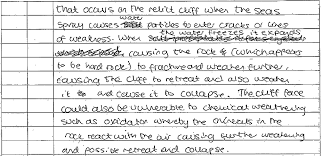 that occurs on the relief cliff when the seas
spray causes water particles to enter cracks or lines
of weakness. When the water freezes it expands
causing the rock (which appears
to be hard rock) to fracture and weather further,
causing the cliff to retreat and also weather
it and cause it to collapse. The cliff face
could also be vulnerable to chemical weathering
such as oxidation whereby the minerals in the
rock react with the air causing further weathering
and possible retreat and collapse.